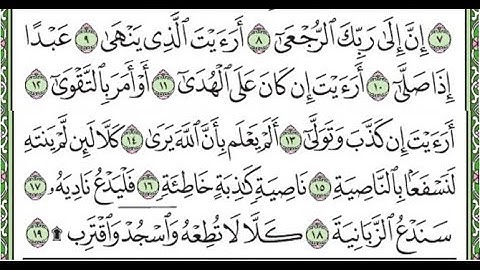 ٧ إِنَّ إِلَىٰ رَبِّكَ ٱلرُّجْعَىٰٓ ٨ أَرَءَيْتَ ٱلَّذِى يَنْهَىٰ ٩ عَبْدًا
إِذَا صَلَّىٰٓ ١٠ أَرَءَيْتَ إِن كَانَ عَلَى ٱلْهُدَىٰٓ ١١ أَوْ أَمَرَ بِٱلتَّقْوَىٰٓ ١٢
أَرَءَيْتَ إِن كَذَّبَ وَتَوَلَّىٰٓ ١٣ أَلَمْ يَعْلَم بِأَنَّ ٱللَّهَ يَرَىٰ ١٤ كَلَّا لَئِن لَّمْ يَنتَهِ
لَنَسْفَعًۢا بِٱلنَّاصِيَةِ ١٥ نَاصِيَةٍ كَٰذِبَةٍ خَاطِئَةٍ ١٦ فَلْيَدْعُ نَادِيَهُۥ ١٧
سَنَدْعُ ٱلزَّبَانِيَةَ ١٨ كَلَّا لَا تُطِعْهُ وَٱسْجُدْ وَٱقْتَرِب ۩ ١٩